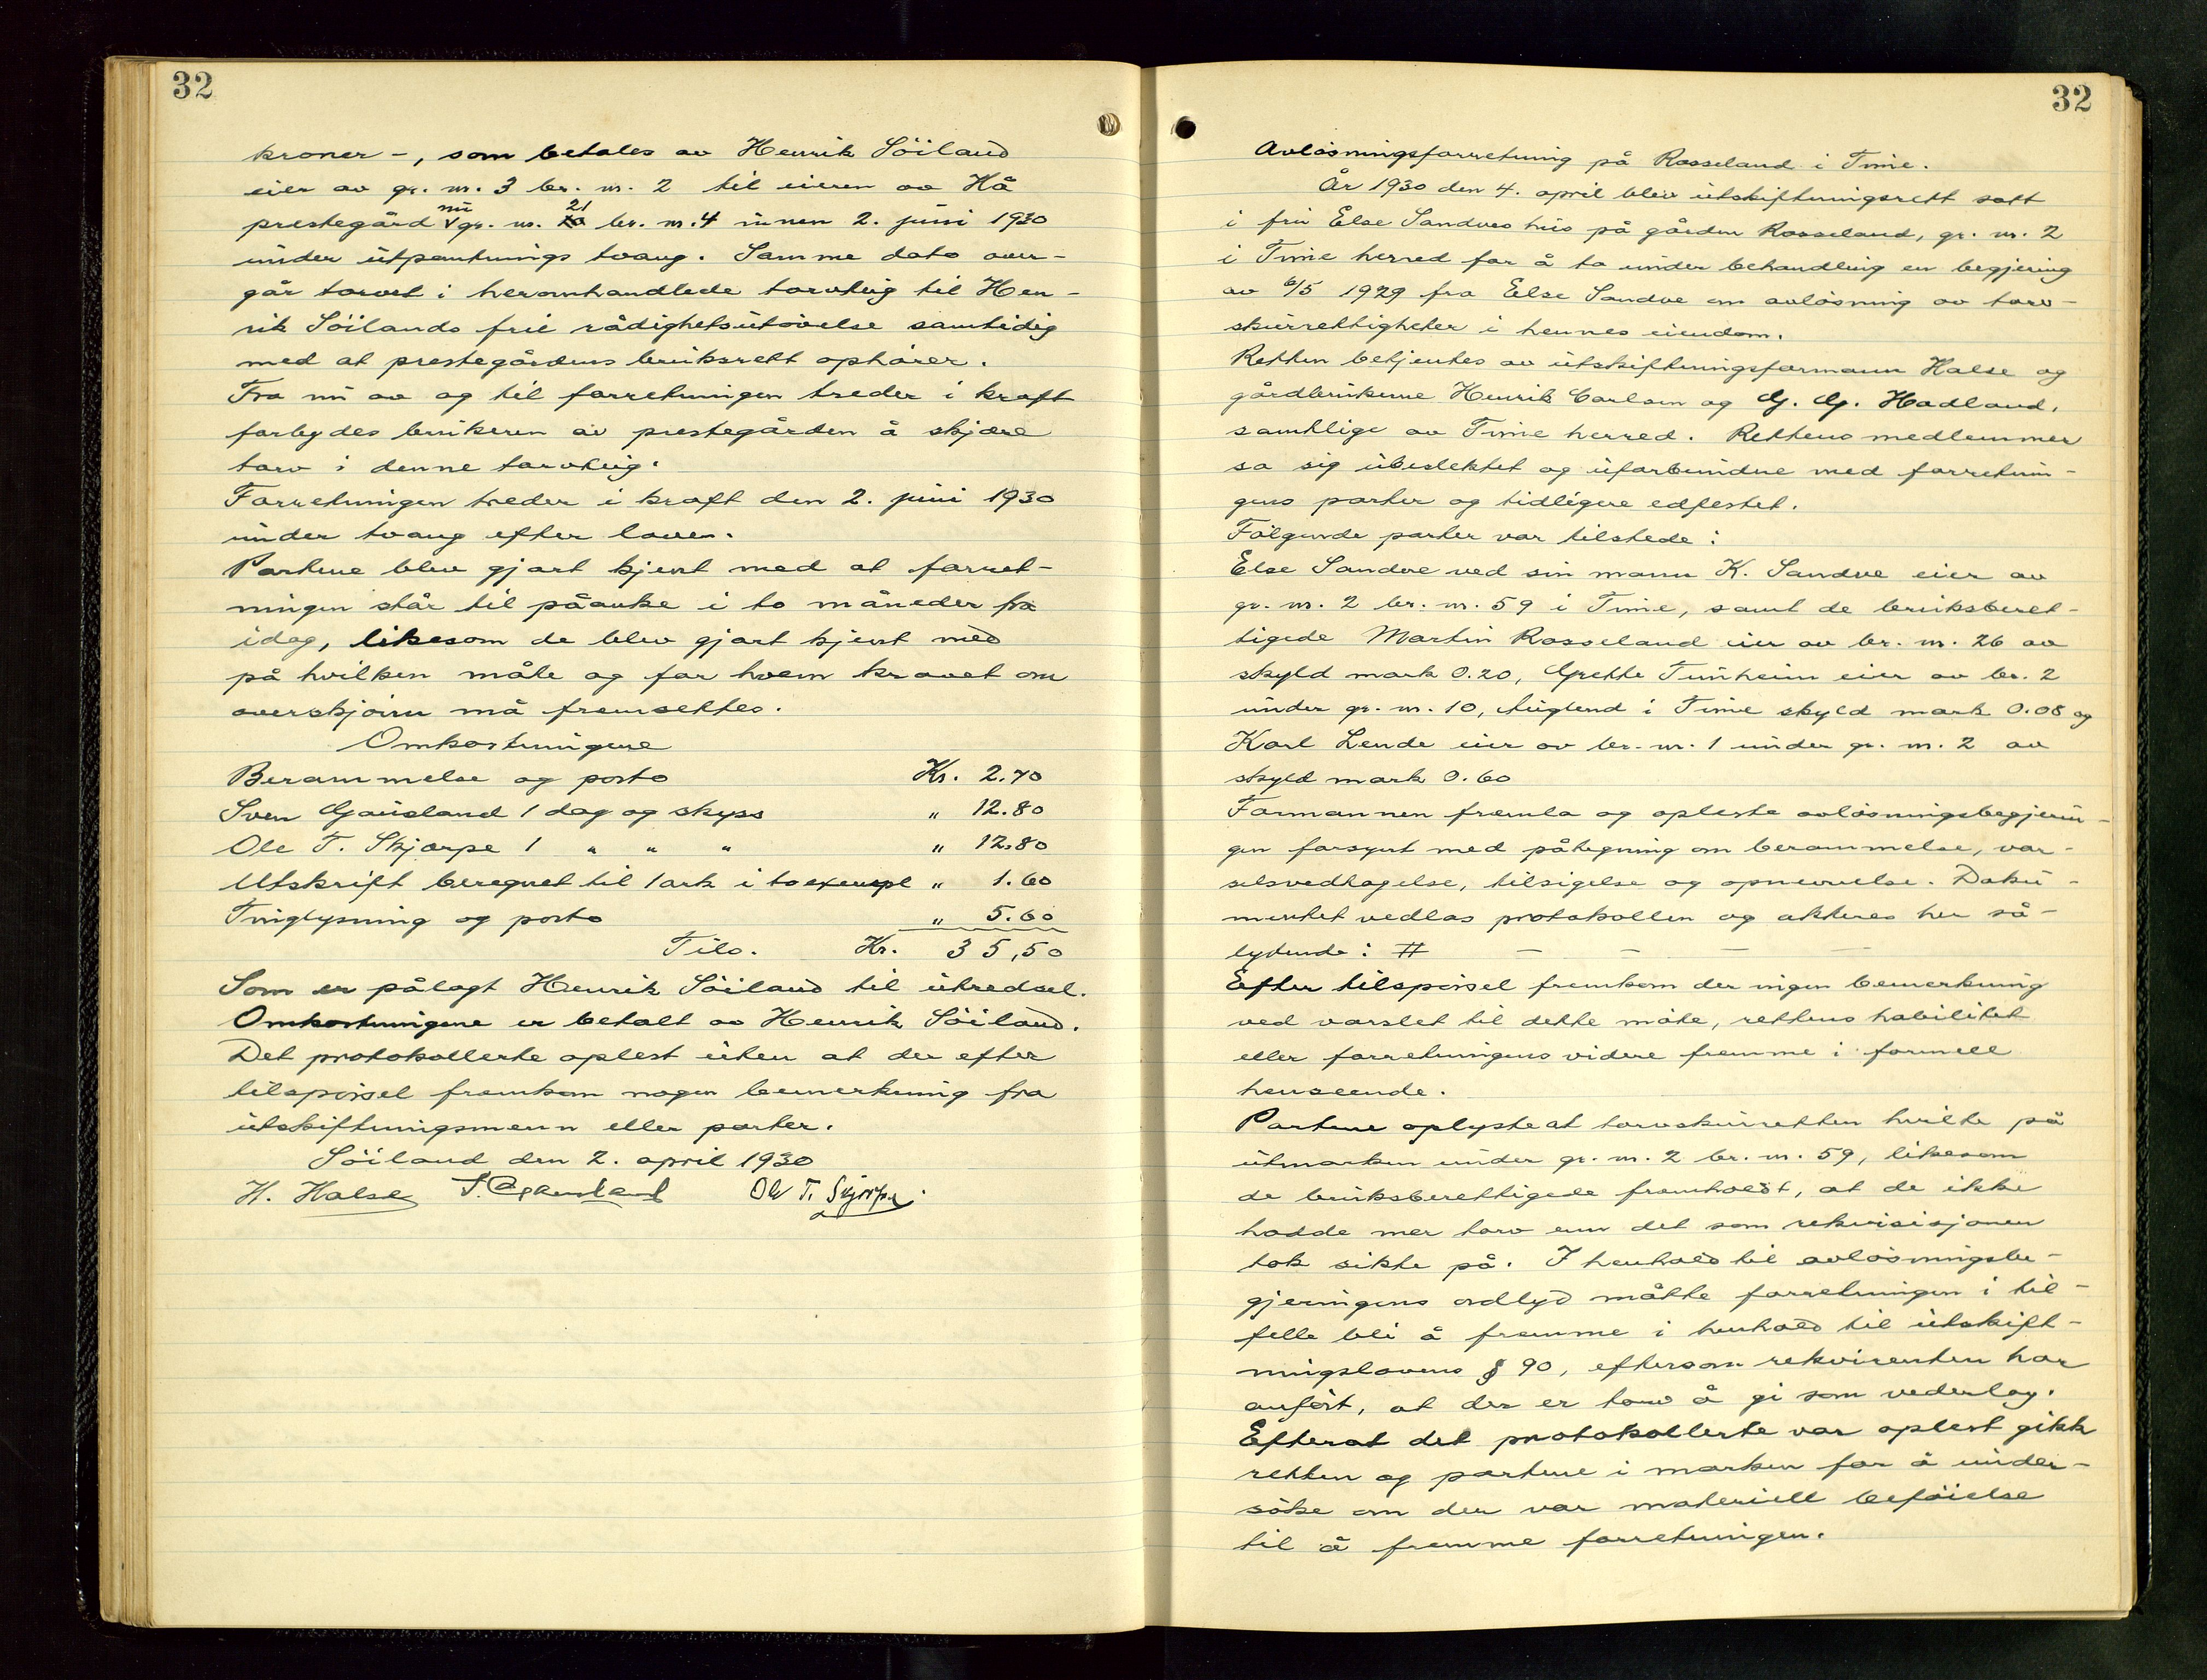 32
kroner -, som betales av Henrik Söiland
eier av gr. nr. 3 br. nr. 2 til eieren av Hå
prestegård nu gr. nr. 21 br. nr. 4 innen 2. juni 1930
under utpantnings tvang. Samme dato over-
går torvet i heromhandlede torvteig til Hen-
rik Söilands frie rådighetsutövelse samtidig
med at prestegårdens bruksrett ophörer.
Fra nu av og til forretningen treder i kraft
forbydes brukeren av prestegården å skjære
torv i denne torvteig.
Forretningen treder i kraft den 2. juni 1930
under tvang efter loven.
Partene blev gjort kjent med at forret-
ningen står til påanke i to måneder fra
idag, likesom de blev gjort kjent med
på hvilken måte og for hvem kravet om
overskjönn må fremsettes.
Omkostningene
Berammelse og porto Kr. 2.70
Sven Gausland 1 dag og skyss " 12.80
Ole T. Skjærpe 1 " " " " 12.80
Utskrift beregnet til 1 ark i to exempl " 1.60
Tinglysning og porto " 5.60
Tils. Kr. 35,50
Som er pålagt Henrik Söiland til utredsel.
Omkostningene er betalt av Henrik Söiland.
Det protokollerte oplest uten at der efter
tilspörsel fremkom nogen bemerkning fra
utskiftningsmenn eller parter.
Söiland den 2. april 1930
H. Halse S. Gausland Ole T. Skjærpe.
32
Avlösningsforretning på Rosseland i Time.
År 1930 den 4. april blev utskiftningsrett satt
i fru Else Sandves hus på gården Rosseland, gr. nr. 2
i Time herred for å ta under behandling en begjæring
av 6/5 1929 fra Else Sandve om avlösning av torv-
skurrettigheter i hennes eiendom.
Retten betjentes av utskiftningsformann Halse og
gårdbrukerne Henrik Carlsen og G. G. Hadland,
samtlige av Time herred. Rettens medlemmer
sa sig ubeslektet og uforbundne med forretnin-
gens parter og tidligere edfestet.
Fölgende parter var tilstede:
Else Sandve ved sin mann K. Sandve eier av
gr. nr. 2 br. nr. 59 i Time, samt de bruksberet-
tigede Martin Rosseland eier av br. nr. 26 av
skyld mark 0.20, Grette Tunheim eier av br. 2
under gr. nr. 10, i Time skyld mark 0.08 og
Karl Lende eier av br. nr. 1 under gr. nr. 2 av
skyld mark 0.60
Formannen fremla og opleste avlösningsbegjerin-
gen forsynt med påtegning om berammelse, var-
selsvedtagelse, tilsigelse og opnevnelse. Doku-
mentet vedlas protokollen og akteres her så-
lydende: # — — — —
Efter tilspörsel fremkom der ingen bemerkning
ved varslet til dette möte, rettens habilitet
eller forretningens videre fremme i formell
henseende.
Partene oplyste at torvskurretten hvilte på
utmarken under gr. nr. 2 br. nr. 59, likesom
de bruksberettigede fremholdt, at de ikke
hadde mer torv enn det som rekvisisjonen
tok sikte på. I henhold til avlösningsbe-
gjeringens ordlyd måtte forretningen i til-
felle bli å fremme i henhold til utskift-
ningslovens § 90, eftersom rekvirenten har
anfört, at der er torv å gi som vederlag.
Efterat det protokollerte var oplest gikk
retten og partene i marken for å under-
söke om der var materiell beföielse
til å fremme forretningen.